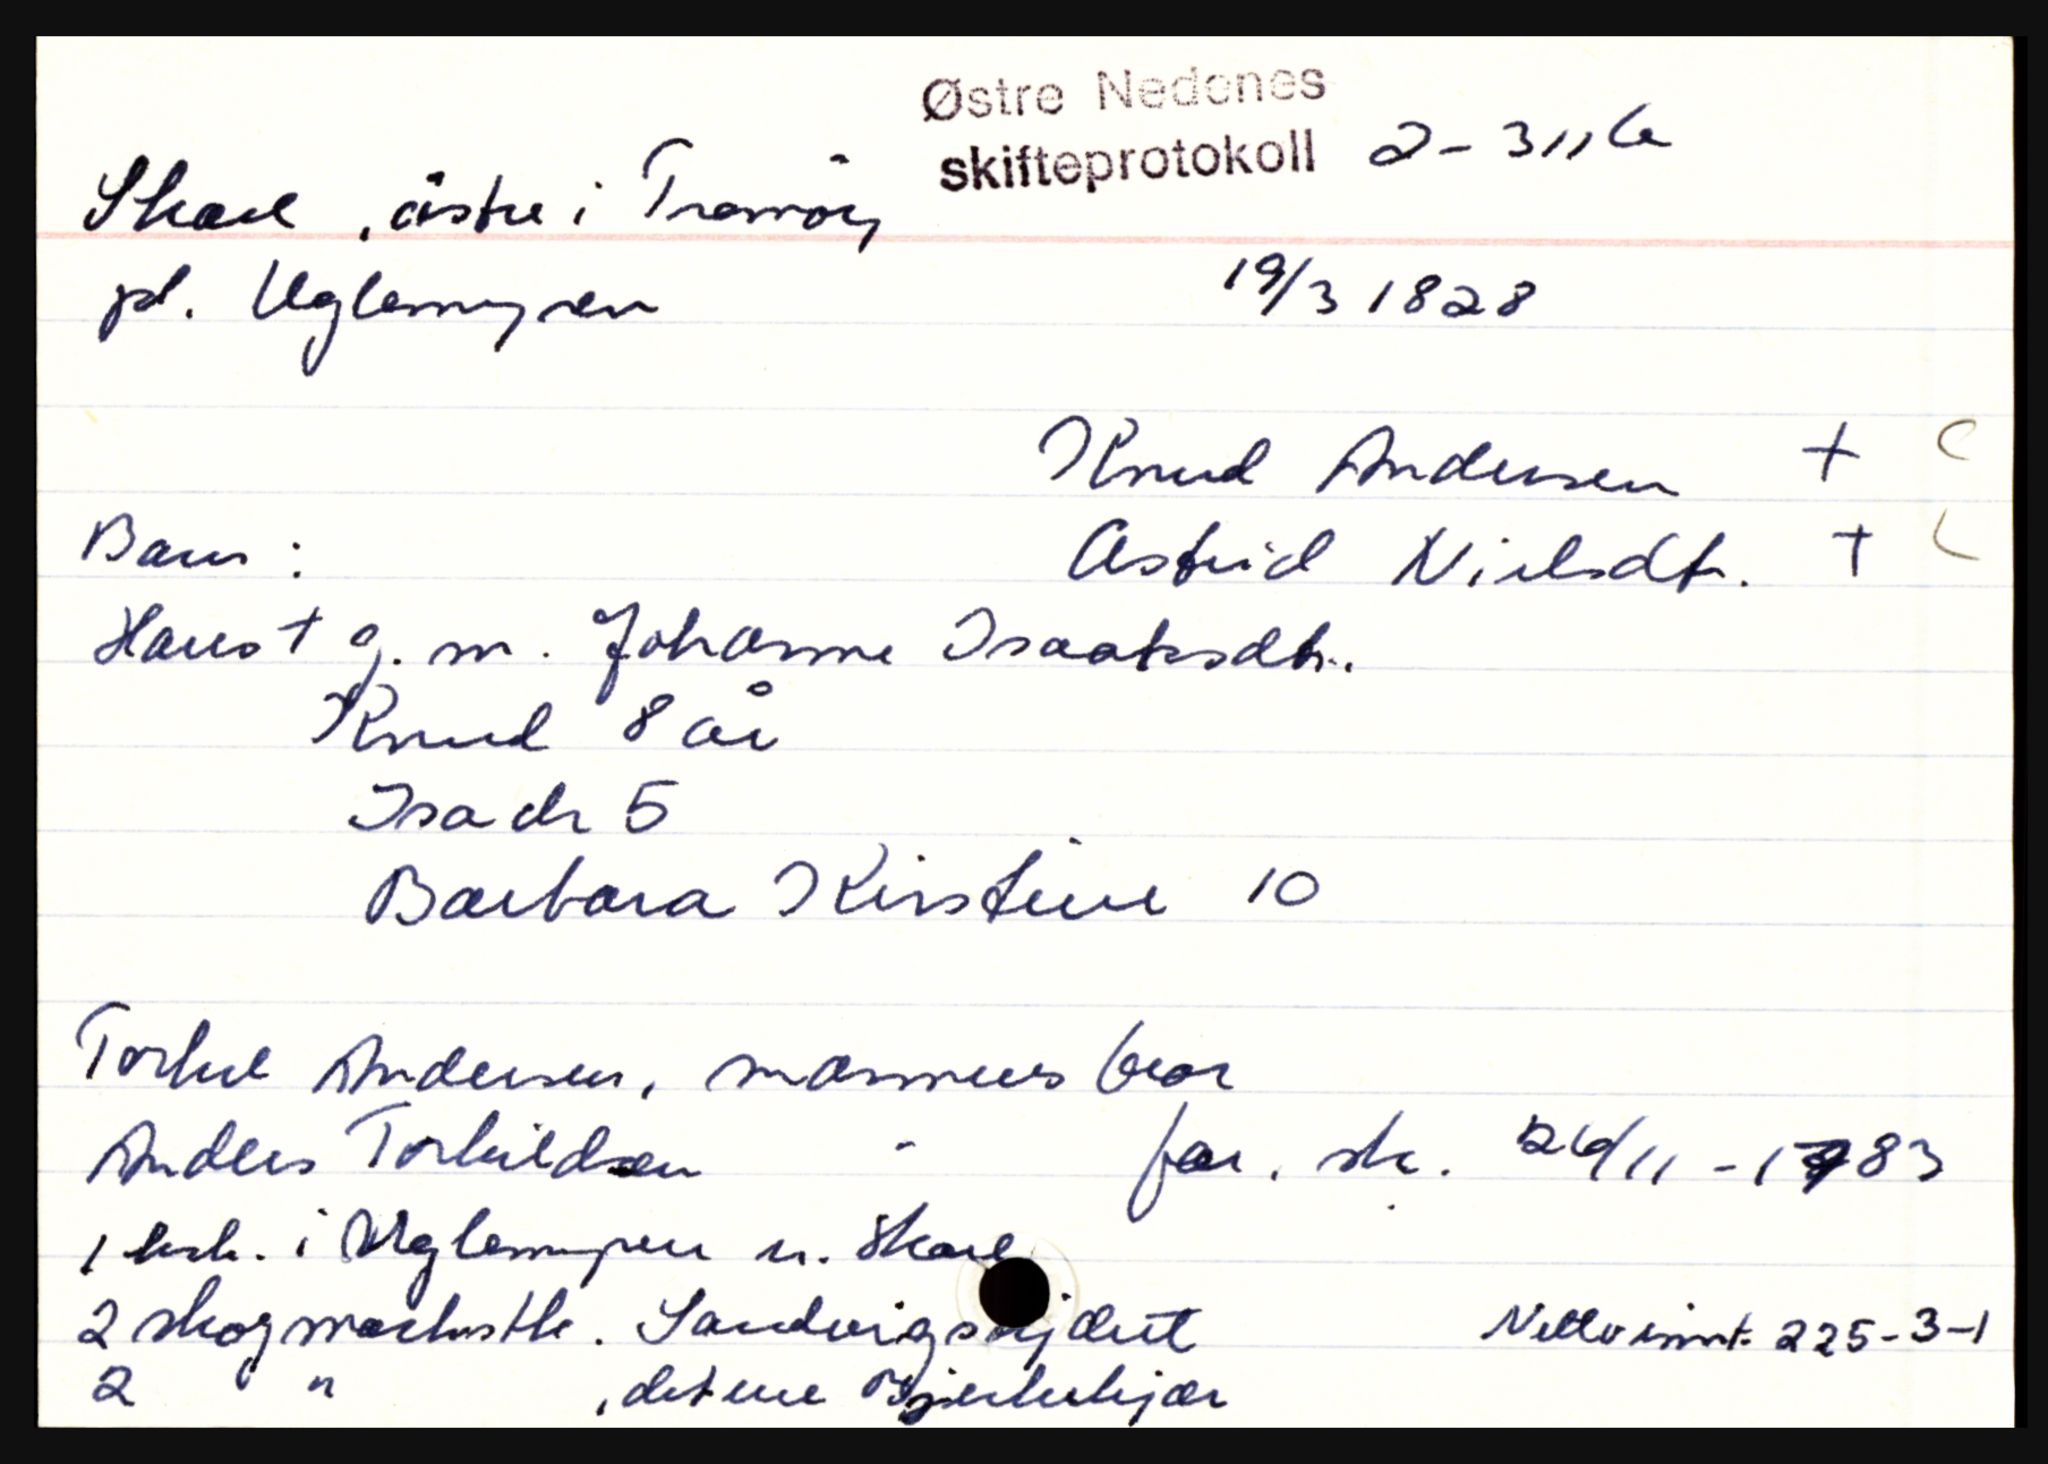 Østre Nedenes
skifteprotokoll 2-311b
Skare, östre i Tromöy
pl. Uglemyren 19/3 1828
Knud Andersen +
Barn: Astrid Nielsdtr. +
Hans + g. m. Johanne Isaaksdtr.
Knud 8 år
Isach 5
Barbara Kirstine 10
Torkel Andersen, mannens bror
Anders Torkildsen - far, sk. 26/11-1783
1 hsk. i Uglemyren u. Skare
2 skogmarkstk. Sandvigs Netto innt. 225-3-1
2 " , det ene Bjerkekjær